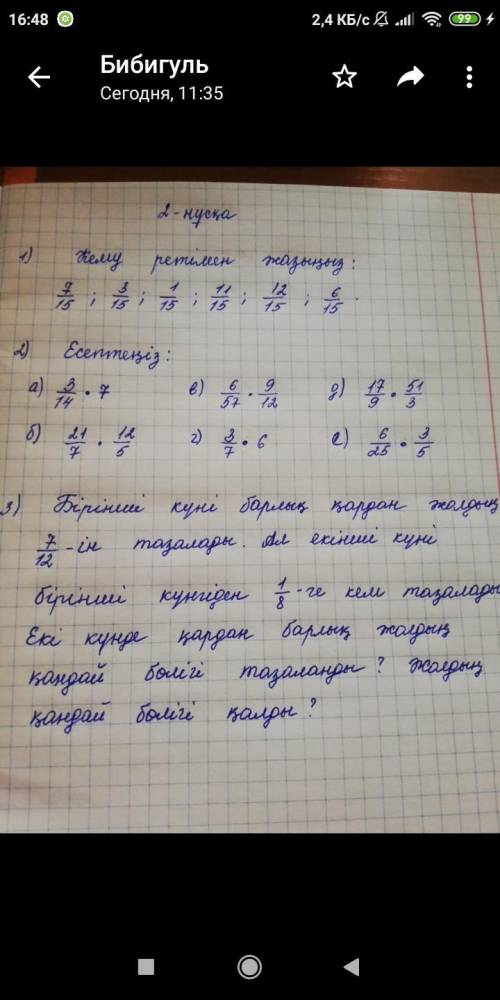 16:48 2,4 КБ/с 99
Бибигуль
Сегодня, 11:35
2-нұсқа
1) Кему ретімен жазыңыз:
7/15 ; 3/15 ; 1/15 ; 11/15 ; 12/15 ; 6/15 .
2) Есептеңіз:
а) 3/14 · 7 в) 6/57 · 9/12 д) 17/9 · 51/3
б) 21/7 · 12/5 г) 3/7 · 6 е) 6/25 · 3/5
3) Бірінші күні барлық қардан жолдың
7/12 -ін тазалады. Ал екінші күні
бірінші күнгіден 1/8 -ге кем тазалады
Екі күнде қардан барлық жолдың
қандай бөлігі тазаланды? Жолдың
қандай бөлігі қалды?